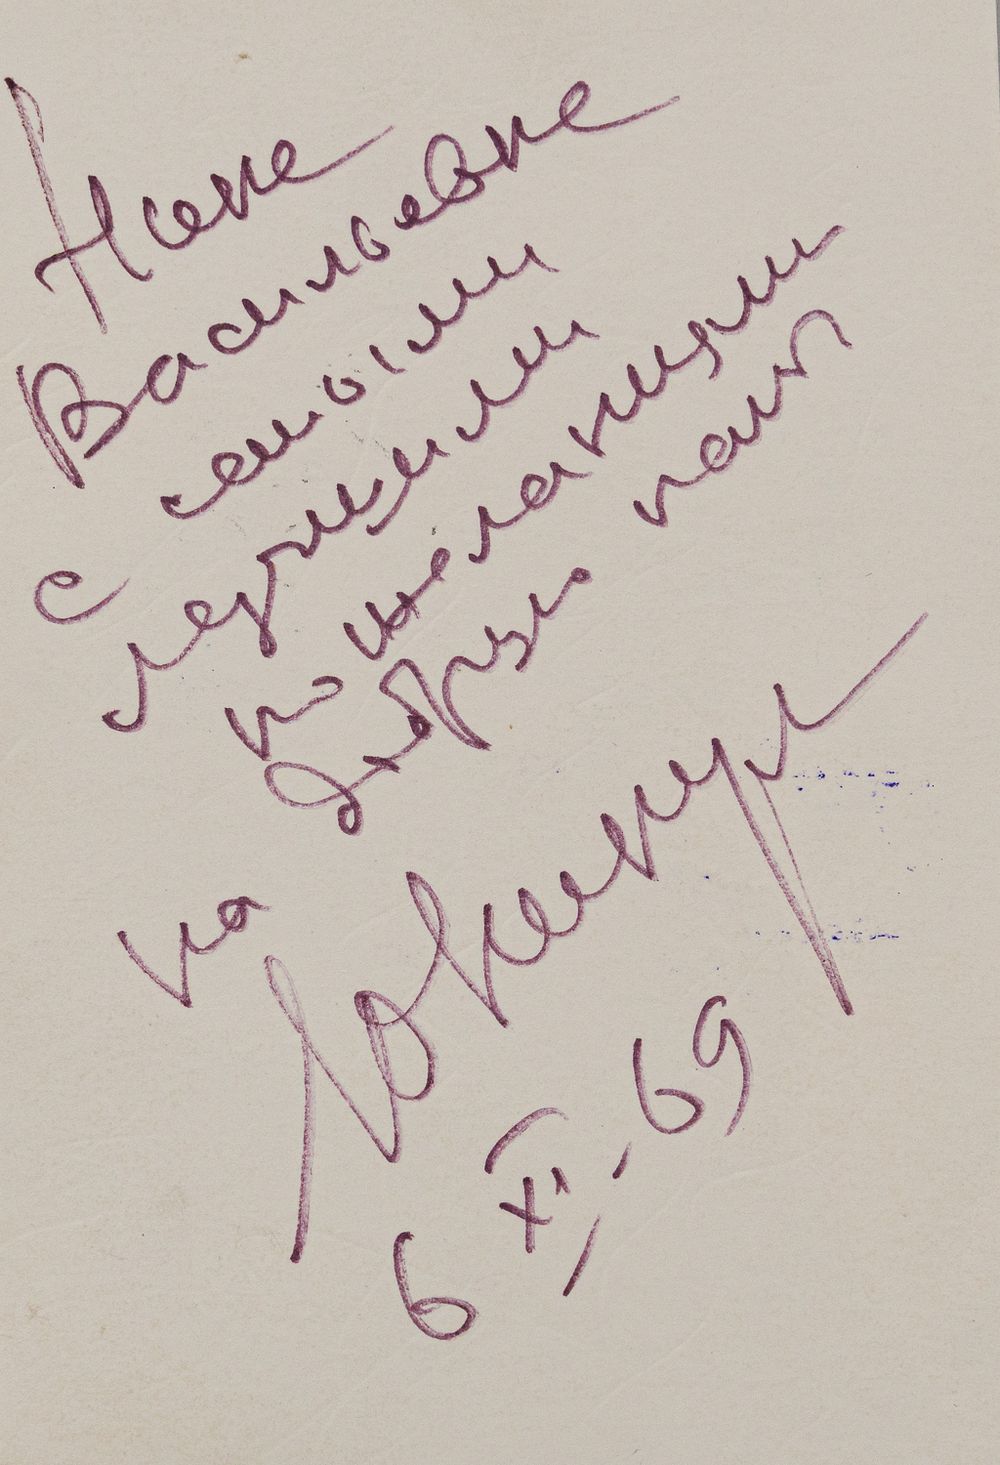 Нине
Васильевне
с самыми
лучшими
пожеланиями
на добрую память
Ю Никулин
6 XI, 69